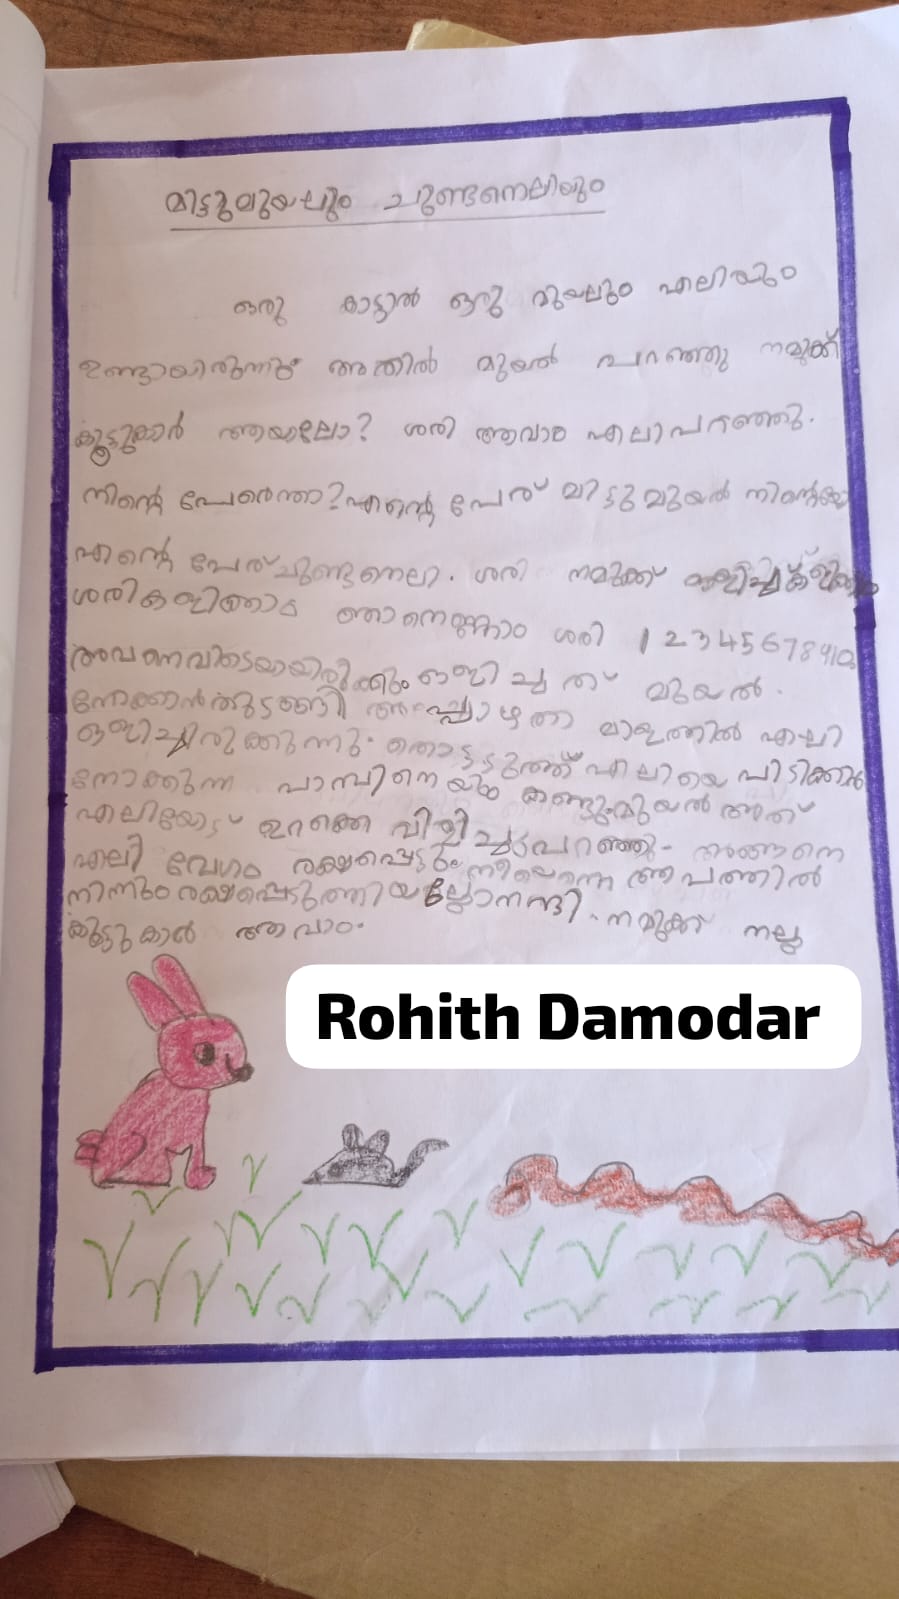 മിട്ടുമുയലും ചുണ്ടനെലിയും
ഒരു കാട്ടാൽ ഒരു മുയലും എലിയും
ഉണ്ടായിരുന്നു അതിൽ മുയൽ പറഞ്ഞു നമുക്ക്
കൂട്ടുകാർ ആയാലോ? ശരി ആവാമ എലിപറഞ്ഞു.
നിന്റെ പേരെന്താ? എന്റെ പേര് മിട്ടുമുയൽ നിന്റെയോ
എന്റെ പേര് ചുണ്ടനെലി. ശരി നമുക്ക്
ശരികളിത്താമ ഞാനെണ്ണാം ശരി 1 2 3 4 5 6 7 8 9 10
അവനെവിടെയായിരിക്കും ഒളിച്ചത് മുയൽ.
നോക്കാൻതുടങ്ങി അപ്പോഴതാ മാളത്തിൽ എലി
ഒളിച്ചിരുക്കുന്നു. തൊട്ടടുത്ത് എലിയെ പിടിക്കാൻ
നോക്കുന്ന പാമ്പിനെയും കണ്ടു മുയൽ അത്
എലിയോട് ഉറക്കെ വിളിച്ചുപറഞ്ഞു. അങ്ങനെ
എലി വേഗം രക്ഷപ്പെട്ടു നീയെന്നെ ആപത്തിൽ
നിന്നും രക്ഷപ്പെടുത്തിയല്ലോ നന്ദി. നമുക്ക് നല്ല
കൂട്ടുകാർ ആവാം.
Rohith Damodar